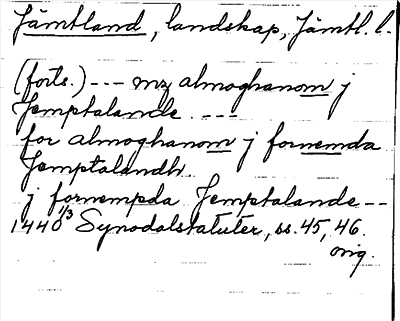 Jämtland, landskap, Jämtl. l.
(forts.) --- mz almoghanom j
Jemptalande. ---
for almoghanom j fornemda
Jemptalandh.
j fornempda Jemptalande --
1440 1/3 Synodalstatuter, ss. 45, 46.
orig.